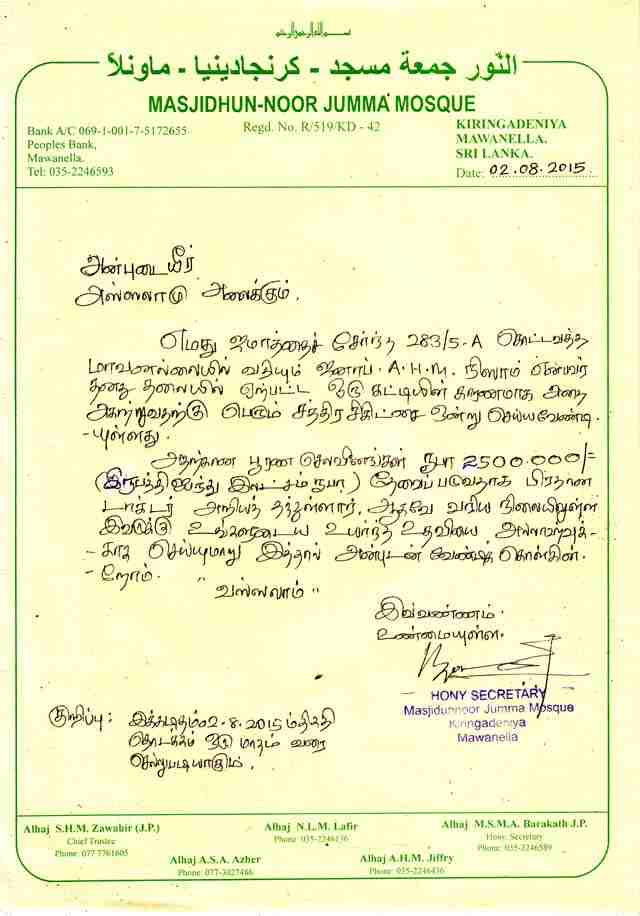 النور جمعة مسجد - كرنجادينيا - ماونلا
MASJIDHUN-NOOR JUMMA MOSQUE
Bank A/C 069-1-001-7-5172655
Peoples Bank,
Mawanella.
Tel: 035-2246593
Regd. No. R/519/KD - 42
KIRINGADENIYA
MAWANELLA.
SRI LANKA.
Date: 02.08.2015
அன்புடையீர்
அஸ்ஸலாமு அலைக்கும்.
எமது ஜமாத்தைச் சேர்ந்த 283/5-A கொட்டவத்த
மாவனல்லையில் வதியும் ஜனாப். A.H.M. நிஸாம் என்பவர்
தனது தலையில் ஏற்பட்ட ஒரு கட்டியின் காரணமாக அதை
அகற்றுவதற்கு பெரும் சத்திர சிகிட்சை ஒன்று செய்யவேண்டி
-யுள்ளது.
அதற்கான பூரண செலவினங்கள் ரூபா 2500.000/=
(இருபத்தி ஐந்து இலட்சம் ரூபா) தேவைப்படுவதாக பிரதான
டாக்டர் அறியத் தந்துள்ளார். ஆகவே வறிய நிலையிலுள்ள
இவருக்கு உங்களுடைய உயர்ந்த உதவியை அல்லாஹ்வுக்-
-காக செய்யுமாறு இத்தால் அன்புடன் வேண்டிக் கொள்கின்
-றோம்.
"வஸ்ஸலாம்"
இவ்வண்ணம்.
உண்மையுள்ள.
HONY SECRETARY
Masjidunnoor Jumma Mosque
Kiringadeniya
Mawanella
குறிப்பு : இக்கடிதம் 02-8-2015ம் திகதி
தொடக்கம் ஒரு மாதம் வரை
செல்லுபடியாகும்.
Alhaj S.H.M. Zawahir (J.P.)
Chief Trustee
Phone: 077 7761605
Alhaj A.S.A. Azher
Phone: 077-3027486
Alhaj N.L.M. Lafir
Phone: 035-2246136
Alhaj A.H.M. Jiffry
Phone: 035-2246436
Alhaj M.S.M.A. Barakath J.P.
Hony. Secretary
Phone: 035-2246589